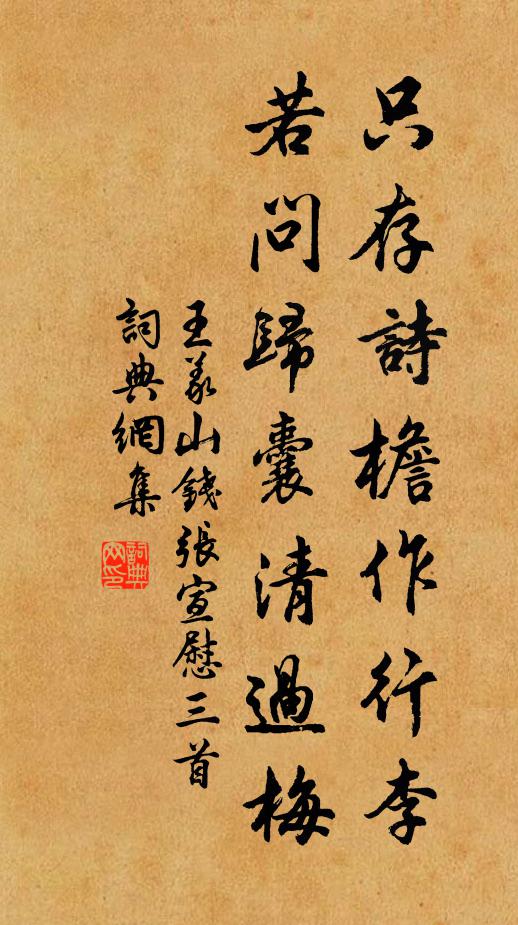 只存詩檐作行李
若問歸囊清過梅
王義山錢張宣慰三首
詞典網集
詞典
网印